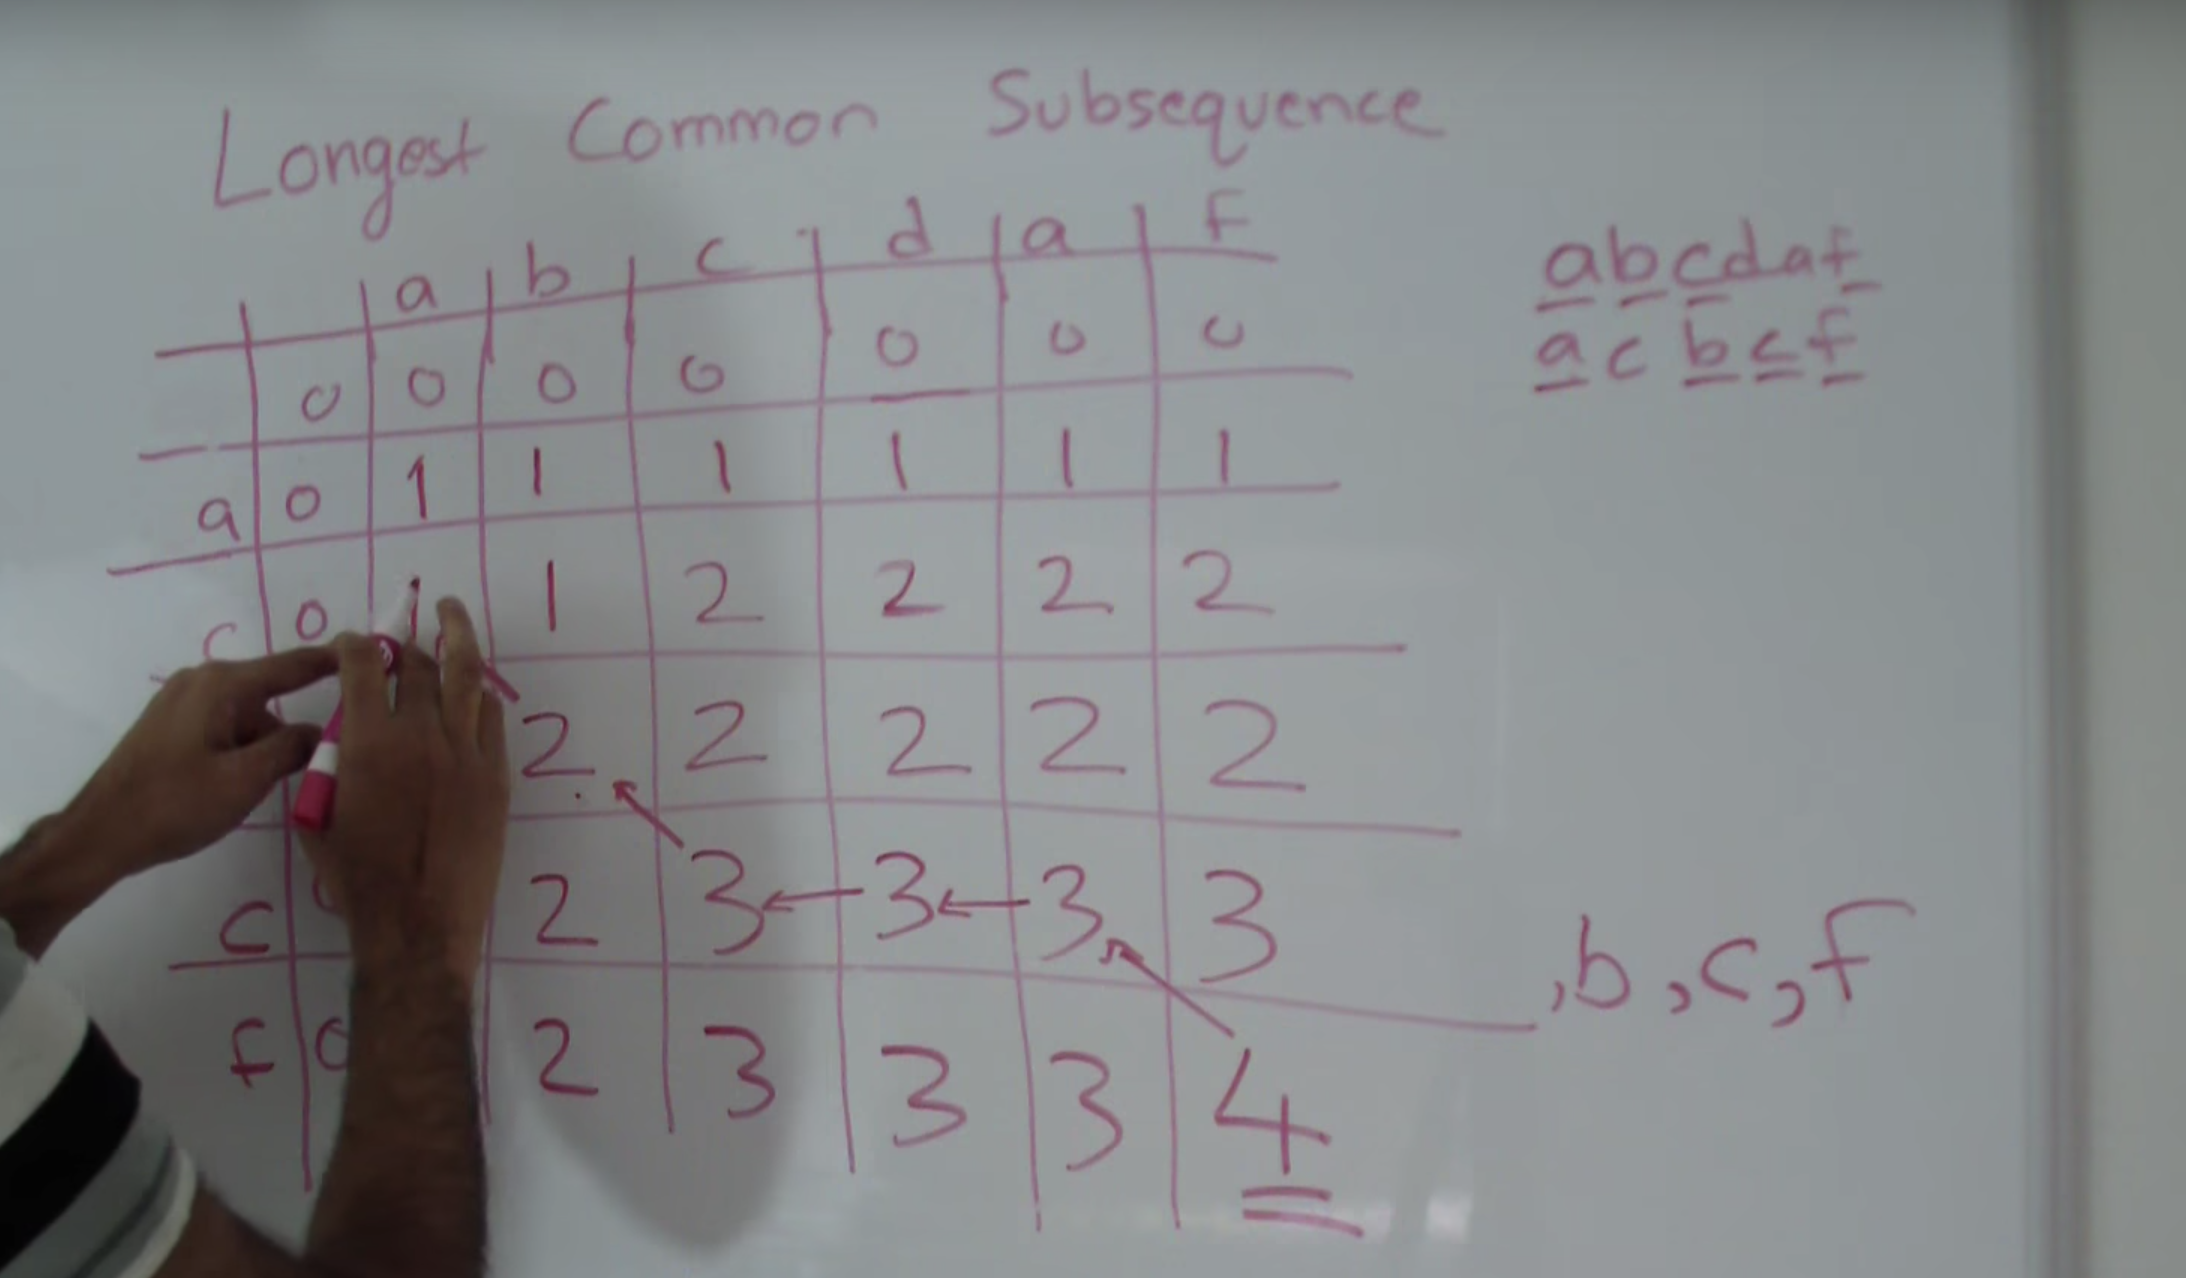 Longest Common Subsequence
a b c d a f
0 0 0 0 0 0 0
a 0 1 1 1 1 1 1
c 0 1 1 2 2 2 2
2 2 2 2 2
c 2 3 3 3 3
f 0 2 3 3 3 4
abcdaf
acbcf
,b,c,f